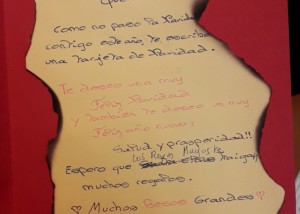 que
Como no paso la Navidad
contigo este año, te escribo
una tarjeta de Navidad.
Te deseo una muy
Feliz Navidad
y también te deseo un muy
Feliz año nuevo.
Salud y prosperidad!!
Los Reyes Magos te
Espero que traigan
muchos regalos.
♡ Muchos Besos Grandes ♡